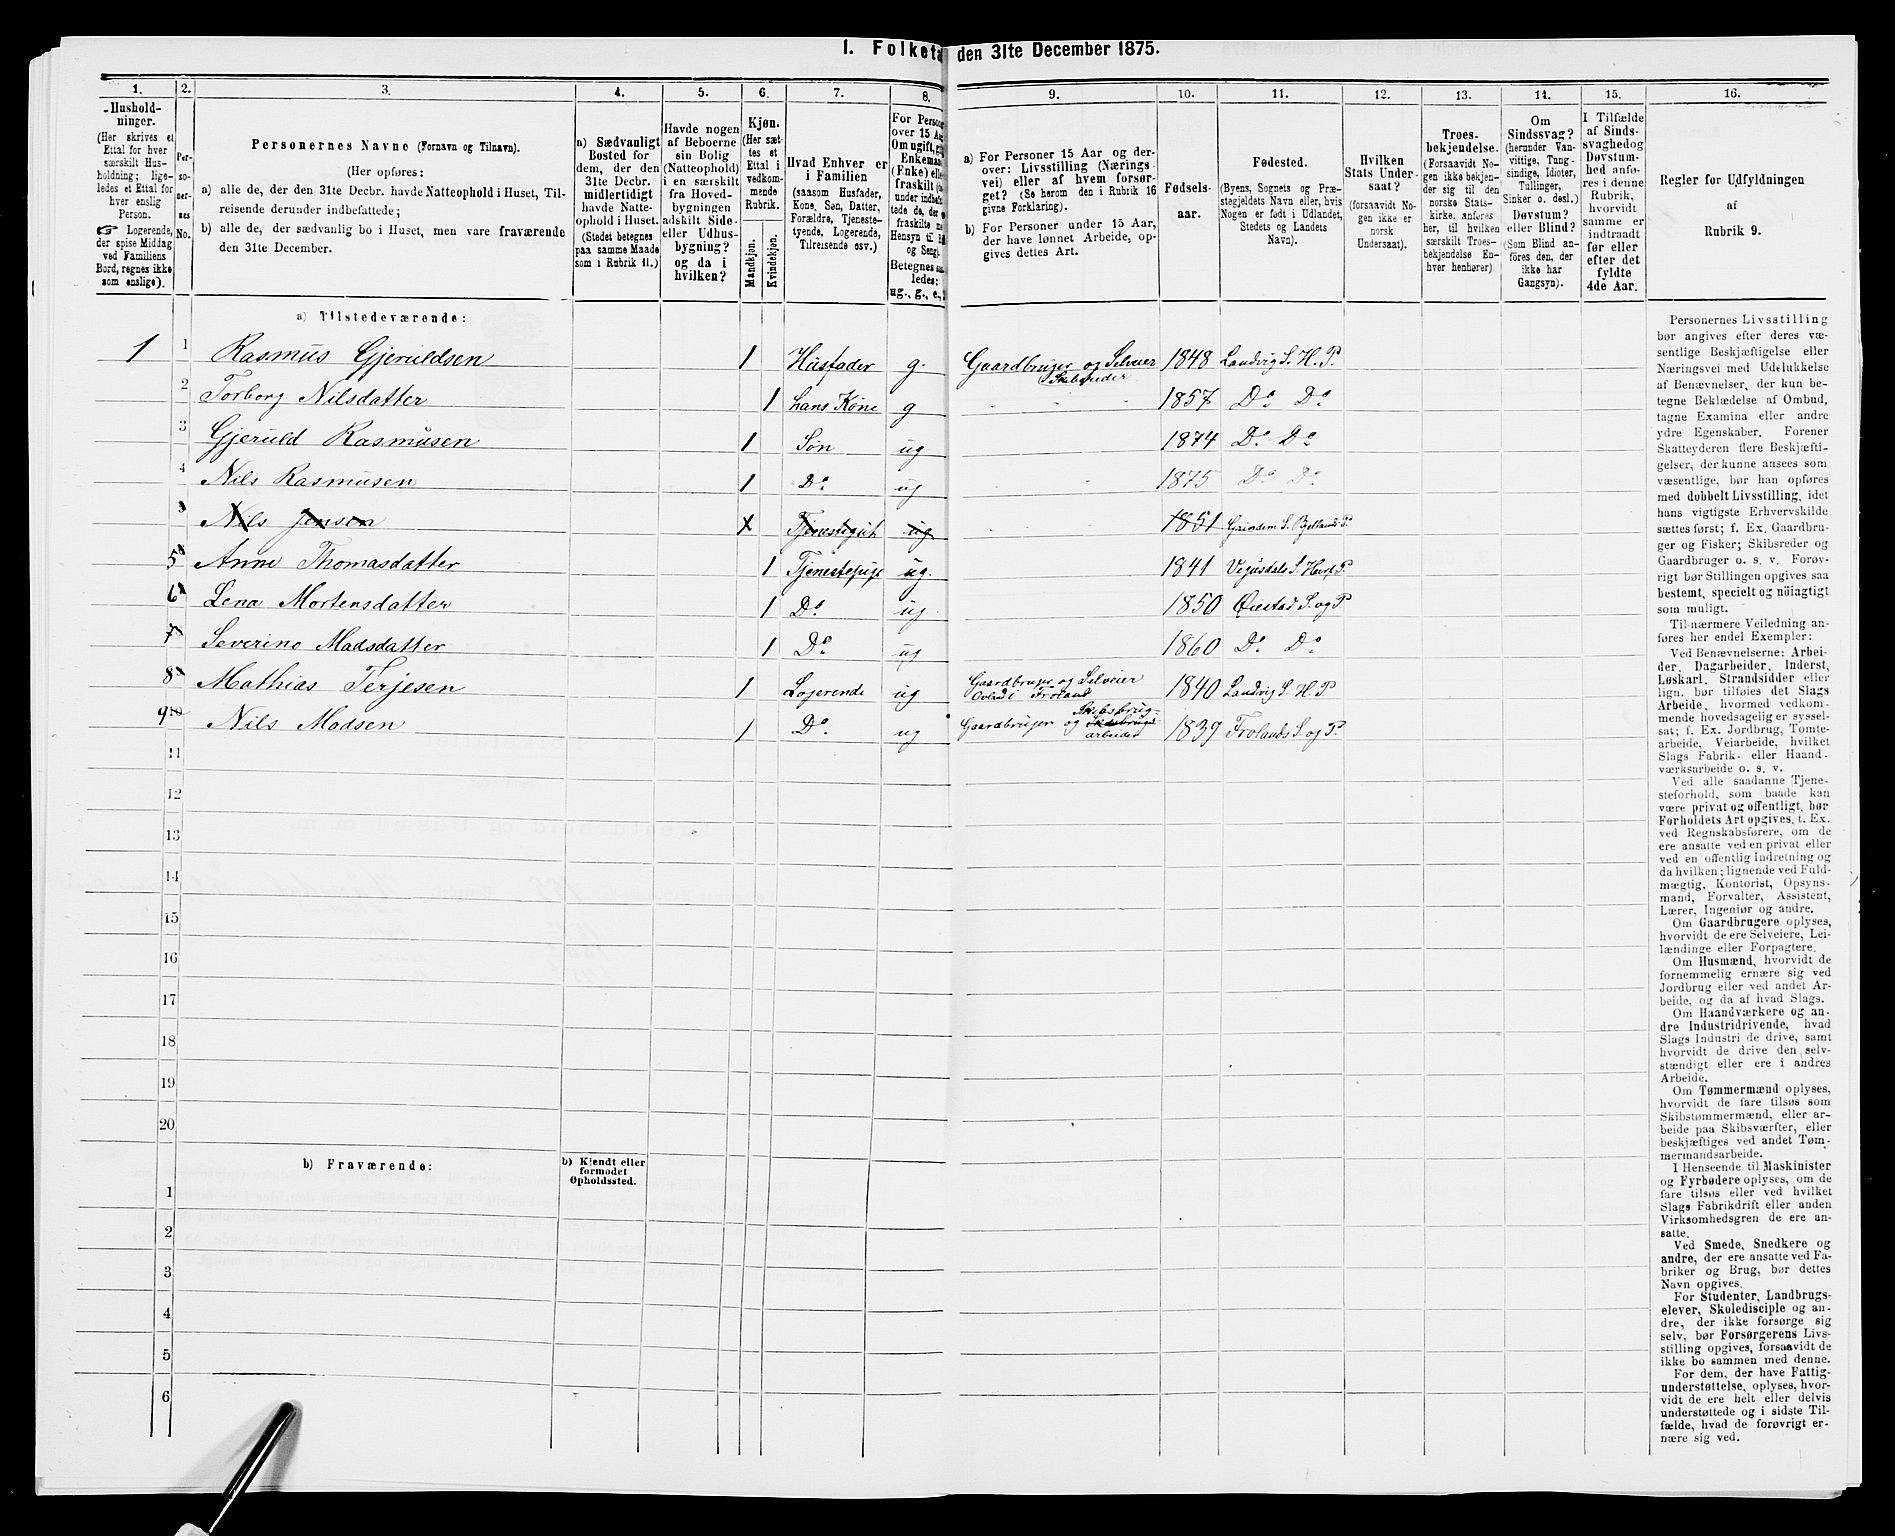 1. Folketa den 31te December 1875.
1. 2. 3. 4. 5. 6. 7. 8. 9. 10. 11. 12. 13. 14. 15. 16.
Hushold-
ninger.
(Her skrives et
Ettal for hver
særskilt Hus-
holdning; lige-
ledes et Ettal for
hver enslig
Person.
☞ Logerende,
der spise Middag
ved Familiens
Bord, regnes ikke
som enslige).
Per-
so-
ner-
nes
No.
Personernes Navne (Fornavn og Tilnavn).
(Her opføres:
a) alle de, der den 31te Decbr. havde Natteophold i Huset, Til-
reisende derunder indbefattede;
b) alle de, der sædvanlig bo i Huset, men vare fraværende
den 31te December.
a) Sædvanligt
Bosted for
dem, der den
31te Decbr.
midlertidigt
havde Natte-
ophold i Huset.
(Stedet betegnes
paa samme Maade
som i Rubrik 11.)
Havde nogen
af Beboerne
sin Bolig
(Natteophold)
i en særskilt
fra Hoved-
bygningen
adskilt Side-
eller Udhus-
bygning?
og da i
hvilken?
Kjøn.
(Her sæt-
tes et
Ettal i
vedkom-
mende
Rubrik.
Mandkjøn.
Kvindekjøn.
Hvad Enhver er
i Familien
(saasom Husfader,
Kone, Søn, Datter,
Forældre, Tjeneste-
tyende, Logerende,
Tilreisende osv.)
For Person
over 15 Aa
Om ugift, g
Enkeman
(Enke) elle
fraskilt (
under indbef
tede de, der
fraskilte
Hensyn til
og Seng).
Betegnes
ledes:
ug., g., e.,
a) For Personer 15 Aar og der-
over: Livsstilling (Nærings-
vei) eller af hvem forsør-
get? (Se herom den i Rubrik 16
givne Forklaring).
b) For Personer under 15 Aar,
der have lønnet Arbeide, op-
gives dettes Art.
Fødsels-
aar.
Fødested.
(Byens, Sognets og Præ-
stegjeldets Navn, eller, hvis
Nogen er født i Udlandet,
Stedets og Landets
Navn).
Hvilken
Stats Under-
saat?
(forsaavidt No-
gen ikke er
norsk
Undersaat).
Troes-
bekjendelse.
(Forsaavidt No-
gen ikke bekjen-
der sig til den
norske Stats-
kirke, anføres
her, til hvilken
særskilt Troes-
bekjendelse En-
hver henhører)
Om
Sindssvag?
(herunder Van-
vittige, Tung-
sindige, Idioter,
Tullinger,
Sinker o. desl.)
Døvstum?
eller Blind?
(Som Blind an-
føres den, der
ikke har
Gangsyn).
I Tilfælde
af Sinds-
svaghed og
Døvstum-
hed anfø-
res i denne
Rubrik,
hvorvidt
samme er
indtraadt
før eller
efter det
fyldte
4de Aar.
Regler for Udfyldningen
af
Rubrik 9.
a) Tilstedeværende:
1 1 Rasmus Gjeruldsen 1 Husfader g. Gaardbruger og Selveier Skibsreder 1848 Landvig S. H. P.
2 Torborg Nilsdatter 1 hans Kone g 1857 Do Do
3 Gjeruld Rasmusen 1 Søn ug 1874 Do Do
4 Nils Rasmusen 1 Do ug 1875 Do Do
Nils Jensen Tjenestegut ug 1851 Grindem S. Bjellands P.
5 Anne Thomasdatter 1 Tjenestepige ug. 1841 Vegusdals S. P.
6 Lena Mortensdatter 1 Do ug. 1850 Øiestad S. og P.
7 Severine Madsdatter 1 Do ug 1860 Do Do
8 Mathias Terjesen 1 Logerende ug Gaardbruger og Selveier i Froland 1840 Landvig S. H. P
9 Nils Madsen 1 Do ug Gaardbruger og Skibsbrug- arbeider 1839 Frolands S. og P.
11
12
13
14
15
16
17
18
19
20
b) Fraværende:
b) Kjendt eller
formodet
Opholdssted.
1
2
3
4
5
6
Personernes Livsstilling
bør angives efter deres væ-
sentlige Beskjæftigelse eller
Næringsvei med Udelukkelse
af Benævnelser, der kun be-
tegne Beklædelse af Ombud,
tagne Examina eller andre
ydre Egenskaber. Forener
Skatteyderen flere Beskjæfti-
gelser, der kunne ansees som
væsentlige, bør han opføres
med dobbelt Livsstilling, idet
hans vigtigste Erhvervskilde
sættes først; f. Ex. Gaardbru-
ger og Fisker; Skibsreder og
Gaardbruger o. s. v. Forøv-
rigt bør Stillingen opgives saa
bestemt, specielt og nöiagtigt
som muligt.
Til nærmere Veiledning an-
føres her endel Exempler:
Ved Benævnelserne: Arbei-
der, Dagarbeider, Inderst,
Løskarl, Strandsidder eller
lign. bør tilføies det Slags
Arbeide, hvormed vedkom-
mende hovedsagelig er syssel-
sat; f. Ex. Jordbrug, Tomte-
arbeide, Veiarbeide, hvilket
Slags Fabrik- eller Haand-
værksarbeide o. s. v.
Ved alle saadanne Tjene-
steforhold, som baade kan
være privat og offentligt, bør
Forholdets Art opgives, t. Ex.
ved Regnskabsførere, om de
ere ansatte ved en privat eller
ved en offentlig Indretning og
da hvilken; lignende ved Fuld-
mægtig, Kontorist, Opsyns-
mand, Forvalter, Assistent,
Lærer, Ingeniør og andre.
Om Gaardbrugere oplyses,
hvorvidt de ere Selveiere, Lei-
lændinge eller Forpagtere.
Om Husmænd, hvorvidt de
fornemmelig ernære sig ved
Jordbrug eller ved andet Ar-
beide, og da af hvad Slags.
Om Haandværkere og an-
dre Industridrivende, hvad
Slags Industri de drive, samt
hvorvidt de drive den selv-
stændigt eller ere i andres
Arbeide.
Om Tømmermænd oplyses,
hvorvidt de fare tilsøs som
Skibstømmermænd, eller ar-
beide paa Skibsværfter, eller
beskjæftiges ved andet Tøm-
mermandsarbeide.
I Henseende til Maskinister
og Fyrbødere oplyses, om de
fare tilsøs eller ved hvilket
Slags Fabrikdrift eller anden
Virksomhedsgren de ere an-
satte.
Ved Smede, Snedkere og
andre, der ere ansatte ved Fa-
briker og Brug, bør dettes
Navn opgives.
For Studenter, Landbrugs-
elever, Skoledisciple og an-
dre, der ikke forsørge sig
selv, bør Forsørgerens Livs-
stilling opgives, forsaavidt de
ikke bo sammen med denne.
For dem, der have Fattig-
understøttelse, oplyses, hvor-
vidt de ere helt eller delvis
understøttede og i sidste Til-
fælde, hvad de forøvrigt er-
nære sig ved.